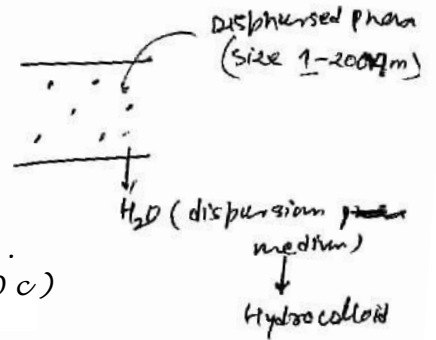 Disphersed phase
(size 1-200nm)
H₂O (dispersion
medium)
c)
Hydrocolloid